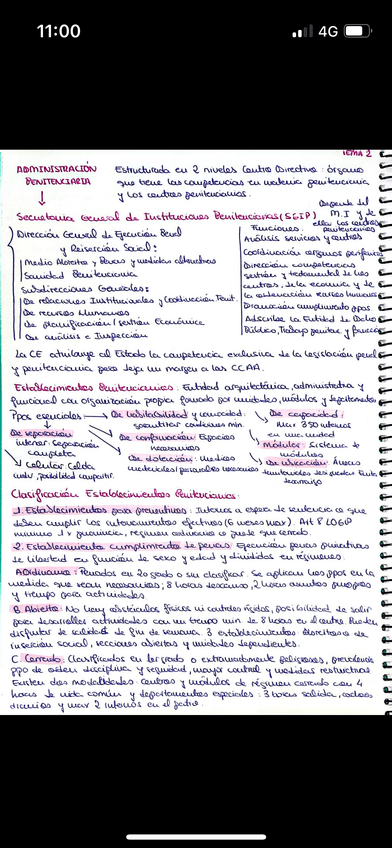 11:00
4G
TEMA 2
ADMINISTRACIÓN PENITENCIARIA
Estructurada en 2 niveles Centro Directivo: órgano
que tiene las competencias en materia penitenciaria
y los centros penitenciarios.
Secretaría General de Instituciones Penitenciarias (SGIP)
Depende del M.I y de ella los centros penitenciarios
Dirección General de Ejecución Penal
y Reinserción Social:
Medio Abierto y Penas y medidas alternativas
Sanidad Penitenciaria
Subdirecciones Generales:
De relaciones Institucionales y Coordinación Territ.
De recursos Humanos
De planificación y gestión Económica
De análisis e Inspección
Funciones:
Análisis servicios y centros
Coordinación órganos periféricos
Dirección competencias
gestión y tratamental de los
centros, de la economía y de
la observación
La CE atribuye al Estado la competencia exclusiva de la legislación penal
y penitenciaria pero deja un margen a las CCAA.
Establecimientos Penitenciarios: Entidad arquitectónica, administrativa y
funcional con organización propia formado por unidades, módulos y departamentos
Ppos esenciales
De habitabilidad y
garantizar condiciones min.
De capacidad:
max 350 internos
en una unidad
De separación
interior: separación
completa
De Espacios
necesarios
Módulos: Sistema
módulos
Celular: Celda
posibilidad compartir.
De dotación: medios
materiales/personales necesarios
De ubicación: Áreas
territoriales
Clasificación Establecimientos Penitenciarios:
1. Establecimientos para preventivos: Internos a espera de sentencia o que
deben cumplir los internamientos efectivos (6 meses max). Art 8 LOGP
mínimo 1 x provincia, régimen ordinario o puede que cerrado.
2. Establecimiento cumplimiento de penas: Ejecución penas privativas
de libertad en función de sexo y edad y divididos en regímenes.
A. Ordinario: Penados en 2º grado o sin clasificar. Se aplican los ppos en la
medida que sean necesarios; 8 horas descanso, 2 horas asuntos propios
y tiempo para actividades.
B. Abierto: No hay obstáculos físicos ni controles rígidos, posibilidad de salir
para desarrollar actividades con un tiempo min de 8 horas en el centro. Pueden
disfrutar de salidas de fin de semana. 3 establecimientos abiertos o de
inserción social, secciones abiertas y unidades dependientes.
C. Cerrado: Clasificados en 1er grado o extremadamente peligrosos, prevalencia
ppo de orden disciplina y seguridad, mayor control y medidas restrictivas
Existen dos modalidades: centros y módulos de régimen cerrado con 4
horas de vida común y departamentos especiales: 3 horas salida, cacheos
diarios y max 2 internos en el patio.